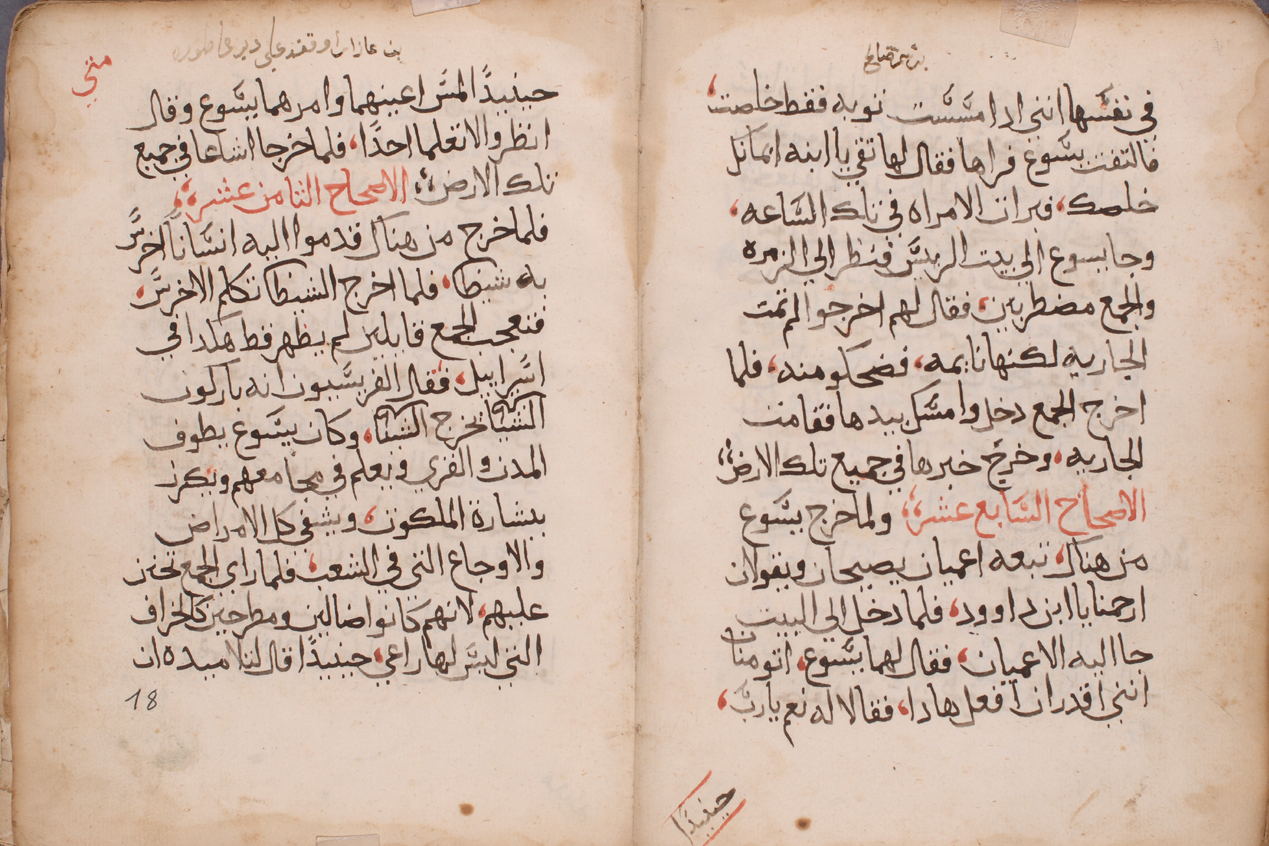 في نفسَها انني ادا مسَسَت ثوبه فقط خلصت،
فالتفت يسَوع فراها فقال لها تقي يا ابنه ايمانك
خلصك، فبرات الامراه في تلك السَاعه،
وجا يسوع الي بيت الرييسَ فنظر الي الزمره
والجمع مضطربين، فقال لهم اخرجوا لم تمت
الجاريه لكنها نايمه، فضحكو منه، فلما
اخرج الجمع دخل وامسَك بيدها فقامت
الجاريه، وخرج خبرها في جميع تلك الارض؛
الاصحاح السَابع عشر؛ ولما خرج يسَوع
من هناك، تبعه اعميان يصيحان ويقولان
ارحمنا يا ابن داوود، فلما دخل الي البيت
جا اليه الاعميان، فقال لهما يسَوع، اتومنان
انني اقدر ان افعل هادا، فقالا له نعم ياربّ،
حينيدًا
متي
حينيدًا المسَ اعينهما وامرهما يسَوع وقال
انظروا لا تعلما احدًا، فلما خرجا اشاعا في جميع
تلك الارض؛ الاصحاح التامن عشر؛
فلما خرج من هناك قدموا اليه انسَاناً اخرسَ
به شيطا، فلما اخرج الشيطا تكلم الاخرسَ،
فتعجب الجمع قايلين لم يظهر قط هكدا في
اسَراييل، فقال الفريسَيون انه باركون
الشيا تخرج الشيا، وكان يسَوع يطوف
المدن والقري ويعلم في مجامعهم ويكرز
ببشارة الملكوت، ويشفي كل الامراض
والاوجاع التي في الشعب، فلما راي الجمع تحنن
عليهم، لانهم كانوا ضالين ومطرحين كالخراف
التي ليسَ لها راعي، حينيدًا قال لتلاميده ان
18